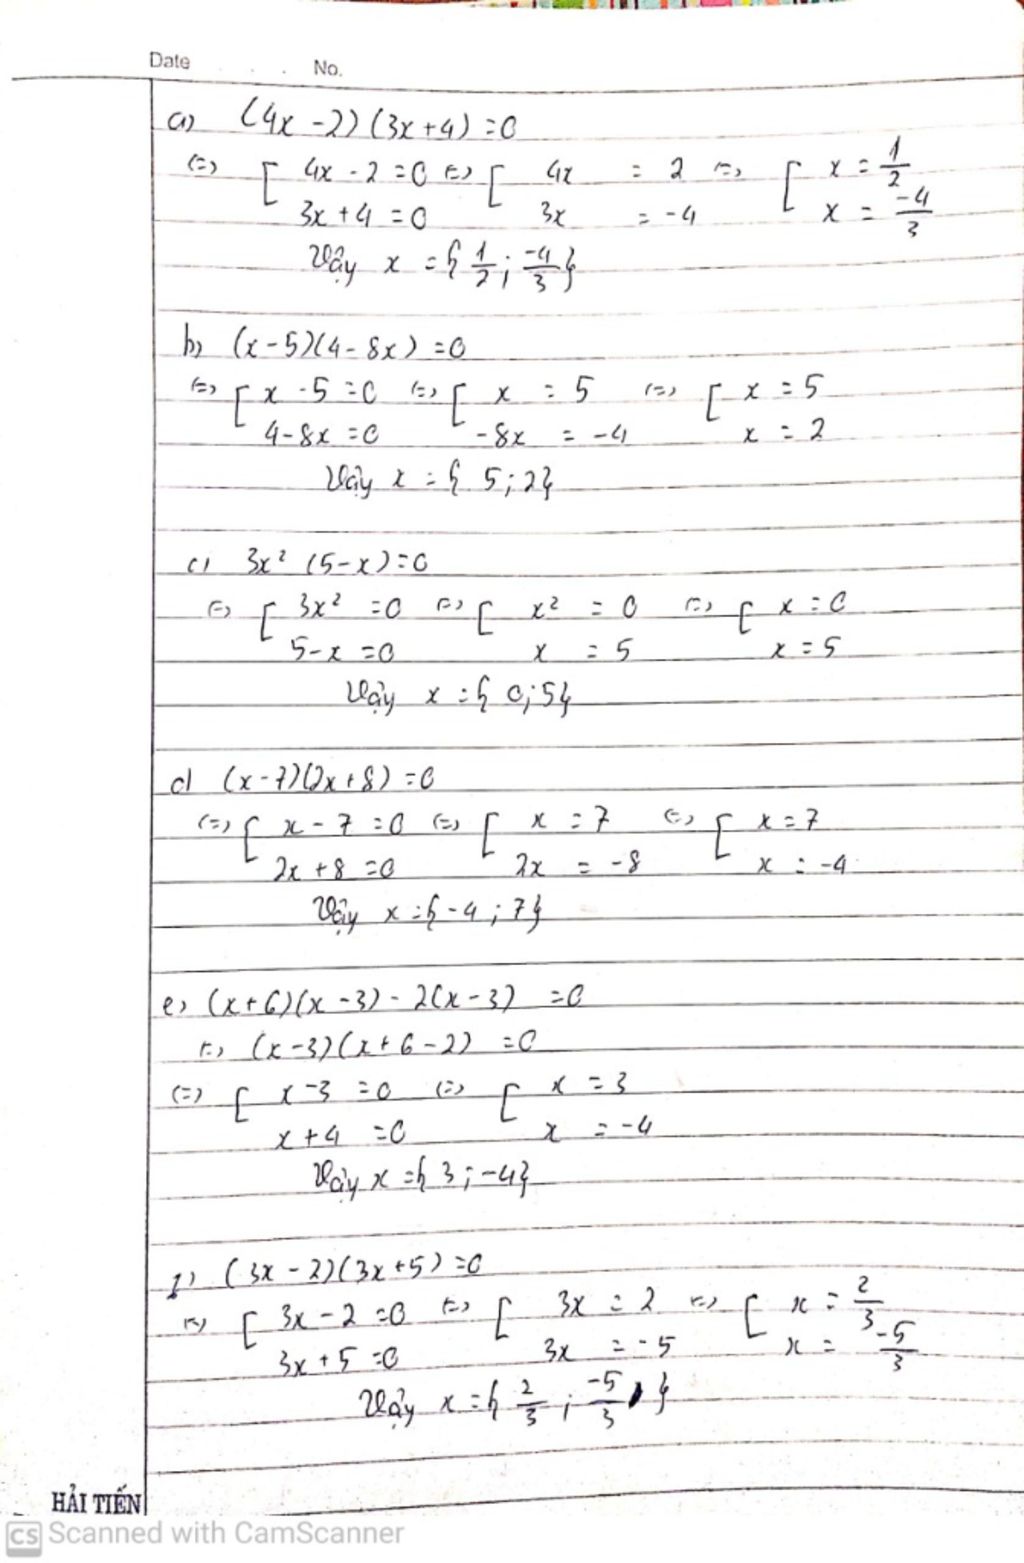 Date . . . No.
a) (4x - 2)(3x + 4) = 0
(=) [ 4x - 2 = 0 (=) [ 4x = 2 (=) [ x = 1/2
3x + 4 = 0 3x = -4 x = -4/3
Vậy x = { 1/2 ; -4/3 }
b) (x - 5)(4 - 8x) = 0
(=) [ x - 5 = 0 (=) [ x = 5 (=) [ x = 5
4 - 8x = 0 -8x = -4 x = 2
Vậy x = { 5 ; 2 }
c) 3x² (5 - x) = 0
(=) [ 3x² = 0 (=) [ x² = 0 (=) [ x = 0
5 - x = 0 x = 5 x = 5
Vậy x = { 0 ; 5 }
d) (x - 7)(2x + 8) = 0
(=) [ x - 7 = 0 (=) [ x = 7 (=) [ x = 7
2x + 8 = 0 2x = -8 x = -4
Vậy x = { -4 ; 7 }
e) (x + 6)(x - 3) - 2(x - 3) = 0
(=) (x - 3)(x + 6 - 2) = 0
(=) [ x - 3 = 0 (=) [ x = 3
x + 4 = 0 x = -4
Vậy x = { 3 ; -4 }
f) (3x - 2)(3x + 5) = 0
(=) [ 3x - 2 = 0 (=) [ 3x = 2 (=) [ x = 2/3
3x + 5 = 0 3x = -5 x = -5/3
Vậy x = { 2/3 ; -5/3 }
HẢI TIẾN
CS Scanned with CamScanner